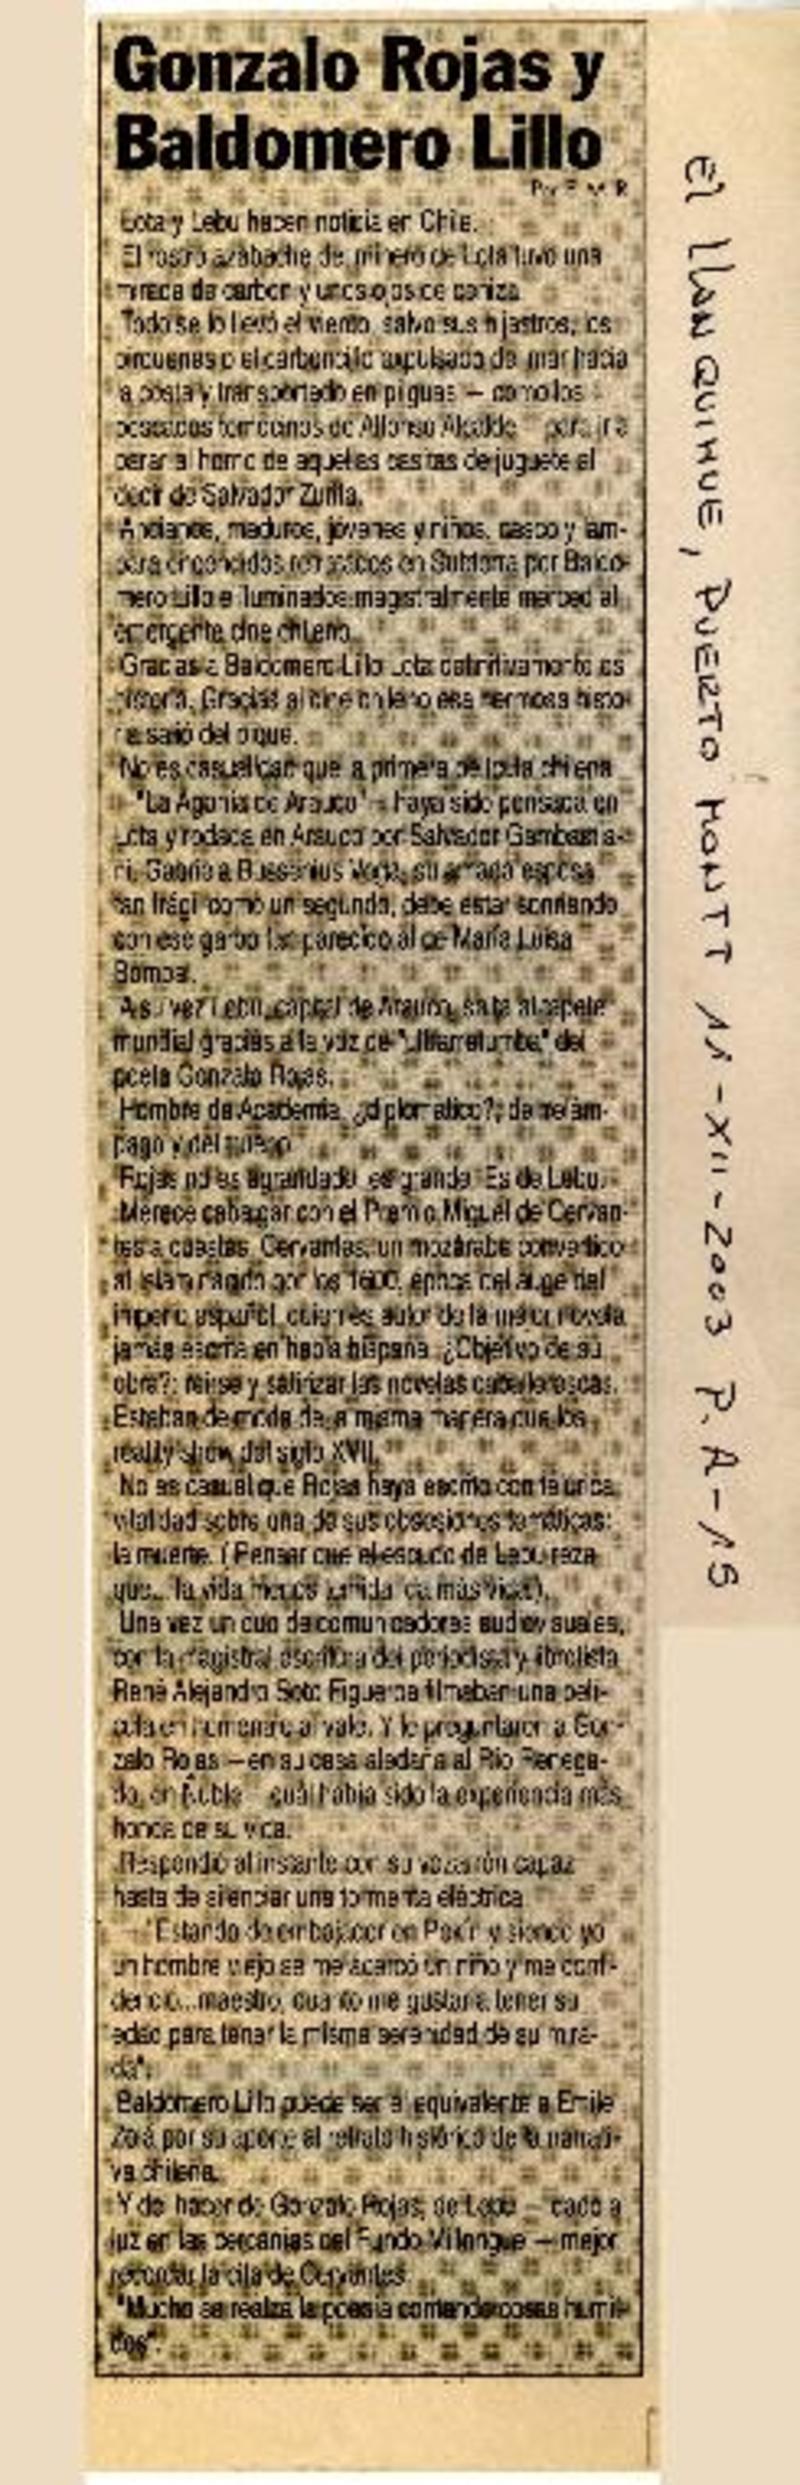 Gonzalo Rojas y
Baldomero Lillo
Lota y Lebu hacen noticia en Chile.
El rostro azabache del minero de Lota tuvo una
mirada de carbón y unos ojos de ceniza
Todo se lo llevó el viento, salvo sus hijastros, los
pirquenes o el carboncillo expulsado del mar hacia
la costa y transportado en pilguas — como los
pescados tomecinos de Alfonso Alcalde — para ir a
parar al horno de aquellas casitas de juguete al
decir de Salvador Zurita.
Ancianos, maduros, jóvenes y niños, casco y lám-
para encendidos retratados en Subterra por Baldo-
mero Lillo e iluminados magistralmente merced al
emergente cine chileno.
Gracias a Baldomero Lillo Lota definitivamente es
historia. Gracias al cine chileno esa hermosa histo-
ria salió del pique.
No es casualidad que la primera película chilena
- "La Agonía de Arauco" - haya sido pensada en
Lota y rodada en Arauco por Salvador Gambastia-
ni. Gabriela Bussenius Vega, su amada esposa
tan frágil como un segundo, debe estar sonriendo
con ese garbo tan parecido al de María Luisa
Bombal.
A su vez Lebu, capital de Arauco, salta al tapete
mundial gracias a la voz de "ultrarretumba" del
poeta Gonzalo Rojas.
Hombre de Academia, ¿diplomático?; de relám-
pago y del
Rojas no es agrandado, es grande. Es de Lebu.
Merece cabalgar con el Premio Miguel de Cervan-
tes a cuestas. Cervantes, un mozárabe convertido
al islam nacido por los 1600, época del auge del
imperio español, quien es autor de la mejor novela
jamás escrita en habla hispana. ¿Objetivo de su
obra?: reírse y satirizar las novelas caballerescas.
Estaban de moda de la misma manera que los
reality show del siglo XVII.
No es casual que Rojas haya escrito con telúrica
vitalidad sobre una de sus obsesiones temáticas:
la muerte. (Pensar que el escudo de Lebu reza
que... la vida menos temida da más vida).
Una vez un duo de comunicadores audiovisuales,
con la magistral escritura del periodista y libretista
René Alejandro Soto Figueroa filmaban una pelí-
cula en homenaje al vate. Y le preguntaron a Gon-
zalo Rojas — en su casa aledaña al Río Renega-
do, en Ñuble — cuál había sido la experiencia más
honda de su vida.
Respondió al instante con su vozarrón capaz
hasta de silenciar una tormenta eléctrica
— "Estando de embajador en Pekín y siendo yo
un hombre viejo se me acercó un niño y me confi-
denció...maestro, cuánto me gustaría tener su
edad para tener la misma serenidad de su mira-
da".
Baldomero Lillo puede ser el equivalente a Emile
Zolá por su aporte al retrato histórico de la narrati-
va chilena.
Y del hacer de Gonzalo Rojas, de Lebu — dado a
luz en las cercanías del Fundo Millongue — mejor
recordar la cita de Cervantes
"Mucho se realza la poesía cantando cosas humil-
des".
El Llanquihue, Puerto Montt 11-XII-2003 P. A-15